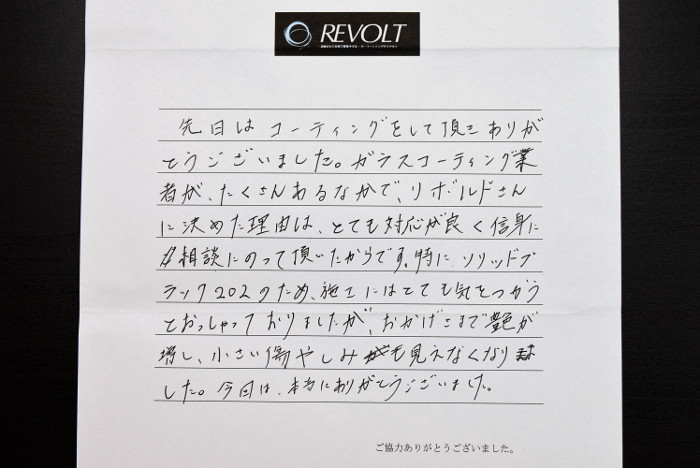 REVOLT
先日は コーティングをして頂き ありが
とうございました。ガラスコーティング業
者が、たくさんあるなかで、リボルドさん
に決めた理由は、とても対応が良く信身に
相談にのって頂いたからです。特に、ソリッドブ
ラック202のため、施工にはとても気をつかう
とおっしゃっておりましたが、おかげさまで艶が
増し、小さい傷やしみも見えなくなりま
した。今回は、本当にありがとうございました。
ご協力ありがとうございました。